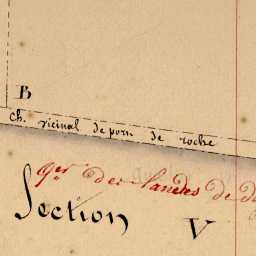 B
Ch. vicinal de porn de roche
qer des Landes de de
Section V